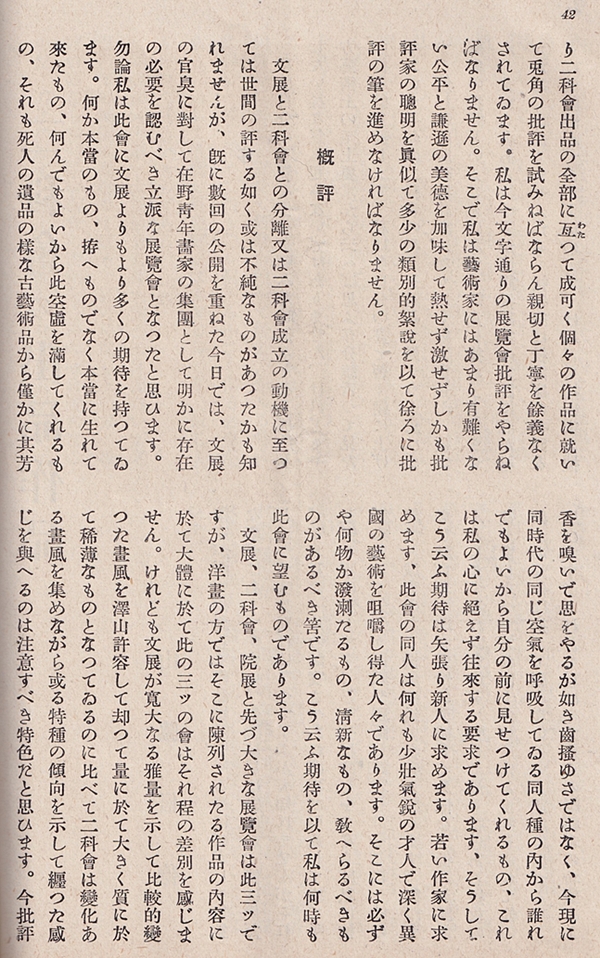 42
り二科會出品の全部に亙つて成可く個々の作品に就い
て兎角の批評を試みねばならん親切と丁寧を餘義なく
されてゐます。私は今文字通りの展覽會批評をやらね
ばなりません。そこで私は藝術家にはあまり有難くな
い公平と謙遜の美德を加味して熱せず激せずしかも批
評家の聰明を眞似て多少の類別的絮說を以て徐ろに批
評の筆を進めなければなりません。
槪評
文展と二科會との分離又は二科會成立の動機に至つ
ては世間の評する如く或は不純なものがあつたかも知
れませんが、旣に數回の公開を重ねた今日では、文展
の官臭に對して在野靑年畫家の集團として明かに存在
の必要を認むべき立派な展覽會となつたと思ひます。
勿論私は此會に文展よりもより多くの期待を持つてゐ
ます。何か本當のもの、拵へものでなく本當に生れて
來たもの、何んでもよいから此空虛を滿してくれるも
の、それも死人の遺品の樣な古藝術品から僅かに其芳
香を嗅いで思をやるが如き齒搔ゆさではなく、今現に
同時代の同じ空氣を呼吸してゐる同人種の內から誰れ
でもよいから自分の前に見せつけてくれるもの、これ
は私の心に絕えず往來する要求であります、そうして
こう云ふ期待は矢張り新人に求めます。若い作家に求
めます、此會の同人は何れも少壯氣銳の才人で深く異
國の藝術を咀嚼し得た人々であります。そこには必ず
や何物か潑溂たるもの、淸新なもの、敎へらるべきも
のがあるべき筈です。こう云ふ期待を以て私は何時も
此會に望むものであります。
文展、二科會、院展と先づ大きな展覽會は此三ッで
すが、洋畫の方ではそこに陳列されたる作品の內容に
於て大體に於て此の三ッの會はそれ程の差別を感じま
せん。けれども文展が寬大なる雅量を示して比較的變
つた畫風を澤山許容して却つて量に於て大きく質に於
て稀薄なものとなつてゐるのに比べて二科會は變化あ
る畫風を集めながら或る特種の傾向を示して纒つた感
じを與へるのは注意すべき特色だと思ひます。今批評